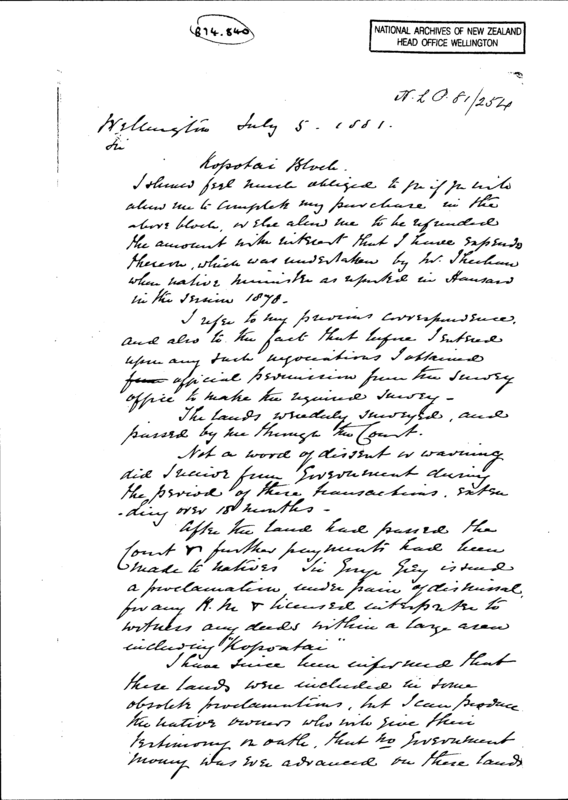 B74.840
NATIONAL ARCHIVES OF NEW ZEALAND
HEAD OFFICE WELLINGTON
N.L.P. 81/254
Wellington July 5. 1881.
Sir
Kopotai Block.
I should feel much obliged to you if you will
allow me to complete my purchase in the
above block, or else allow me to be refunded
the amount with interest that I have expended
thereon, which was undertaken by Mr. Sheehan
when native minister as reported in Hansard
in the session 1878.
I refer to my previous correspondence,
and also to the fact that before I entered
upon any such negociations I obtained
official permission from the survey
office to make the required survey -
The lands were duly surveyed, and
passed by me through the Court.
Not a word of dissent or warning
did I receive from Government during
the period of these transactions, exten
-ding over 18 months -
After the land had passed the
Court & further payments had been
made to natives Sir George Grey issued
a proclamation, under pain of dismissal,
for any R.M. & licensed interpreter to
witness any deeds within a large area
including "Kopoatai"
I have since been informed that
these lands were included in some
obsolete proclamations, but I can produce
the native owners who will give their
testimony on oath, that no Government
money was ever advanced on these lands